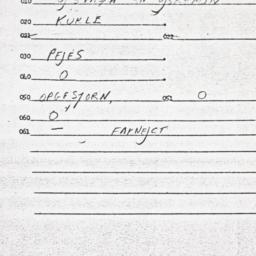 020 KUKLE
022 022
030 PEJES
040 O
050 OPGESTORN, 052 O
060 O
061 — FAYNEJCT